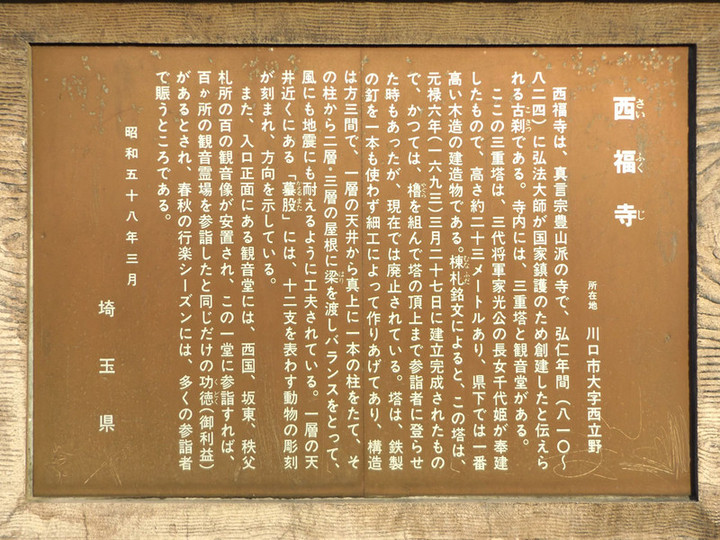 西福寺
さいふくじ
所在地 川口市大字西立野
西福寺は、真言宗豊山派の寺で、弘仁年間(八一〇〜
八二四)に弘法大師が国家鎮護のため創建したと伝えら
れる古刹である。寺内には、三重塔と観音堂がある。
こさつ
ここの三重塔は、三代将軍家光公の長女千代姫が奉建
したもので、高さ約二十三メートルあり、県下では一番
高い木造の建造物である。棟札銘文によると、この塔は、
むなふだ
元禄六年(一六九三)三月二十七日に建立完成されたもの
で、かつては、櫓を組んで塔の頂上まで参詣者に登らせ
やぐら
た時もあったが、現在では廃止されている。塔は、鉄製
の釘を一本も使わず細工によって作りあげてあり、構造
は方三間で、一層の天井から真上に一本の柱をたて、そ
の柱から二層・三層の屋根に梁を渡しバランスをとって、
はり
風にも地震にも耐えるように工夫されている。一層の天
井近くにある「蟇股」には、十二支を表わす動物の彫刻
かえるまた
が刻まれ、方向を示している。
また、入口正面にある観音堂には、西国、坂東、秩父
札所の百の観音像が安置され、この一堂に参詣すれば、
百か所の観音霊場を参詣したと同じだけの功徳(御利益)
くどく
があるとされ、春秋の行楽シーズンには、多くの参詣者
で賑うところである。
昭和五十八年三月
埼玉県